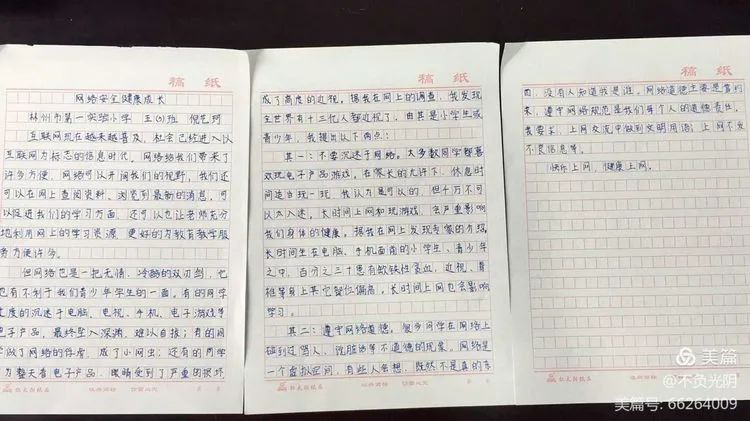 稿 纸
网络安全健康成长
林州市第一实验小学 五(5)班 倪艺珂
互联网现在越来越普及，社会已经进入以
互联网为标志的信息时代，网络给我们带来了
许多方便，网络可以开阔我们的视野，我们还
可以在网上查阅资料、浏览到最新的消息，可
以促进我们的学习方面，还可以也让老师充分
地利用网上的学习资源，更好的为教育教学服
务方便许多。
但网络也是一把无情、冷酷的双刃剑，它
也有不利于我们青少年学生的一面。有的同学
度的沉迷于电脑、电视、手机、电子游戏等
电子产品，最终坠入深渊，难以自拔；有的同
学做了网络的俘虏，成了小网虫；还有的同学
为整天看电子产品，眼睛受到了严重的损坏
稿 纸
成了高度的近视。据我在网上的调查，我发现
全世界有十三亿人都近视了，由其是小学生或
青少年，我提出以下两点：
其一：不要沉迷于网络。大多数同学都喜
欢玩电子产品游戏，在家长的允许下，休息时
间适当玩一玩，我认为是可以的，但千万不可
以太入迷，长时间上网和玩游戏，会严重影响
我们身体的健康。据我在网上发现专家的介绍
长时间坐在电脑、手机面前的小学生、青少年
之中，百分之三十患有缺铁性贫血、近视、脊
柱等身上其它部位偏高。长时间上网也会影响
学习。
其二：遵守网络道德。很多同学在网络上
碰到过骂人、说脏话等不道德的现象，网络是
一个虚拟空间，有些人会想，既然不是真的东
稿 纸
西，没有人知道我是谁。网络道德主要是靠约
束，遵守网络规范是我们每个人的道德责任。
我要求：上网交流中做到文明用语，上网不发
不良信息等。
快乐上网，健康上网。
美篇
@不负光阴
美篇号: 66264009